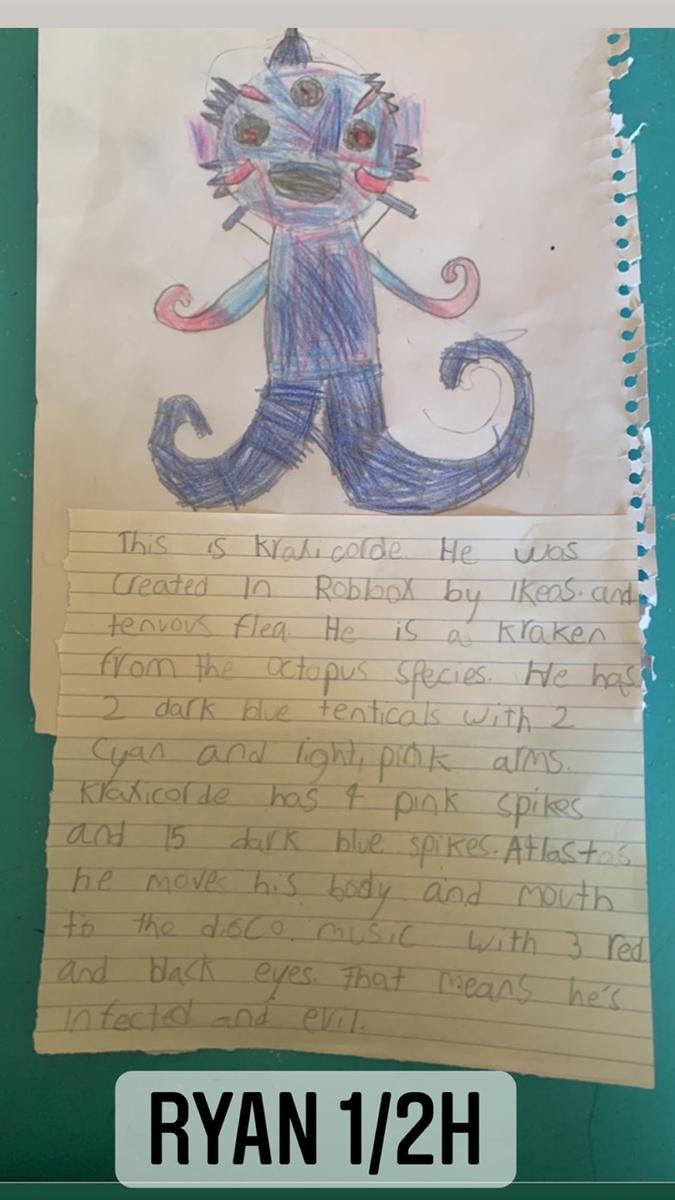 This is Kraxicorde He was
created in Robloox by Ikeas. and
tenvous flea. He is a kraken
from the octopus species. He has
2 dark blue tenticals with 2
cyan and light pink arms.
Kraxicorde has 4 pink spikes
and 15 dark blue spikes. Atlastos
he moves his body and mouth
to the disco. music with 3 red
and black eyes. That means he's
infected and evil.
RYAN 1/2H